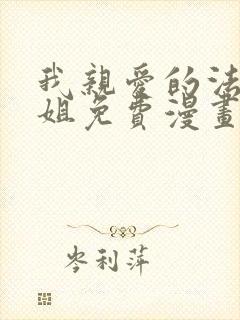 我親愛的法
姐免費漫畫
岑利萍